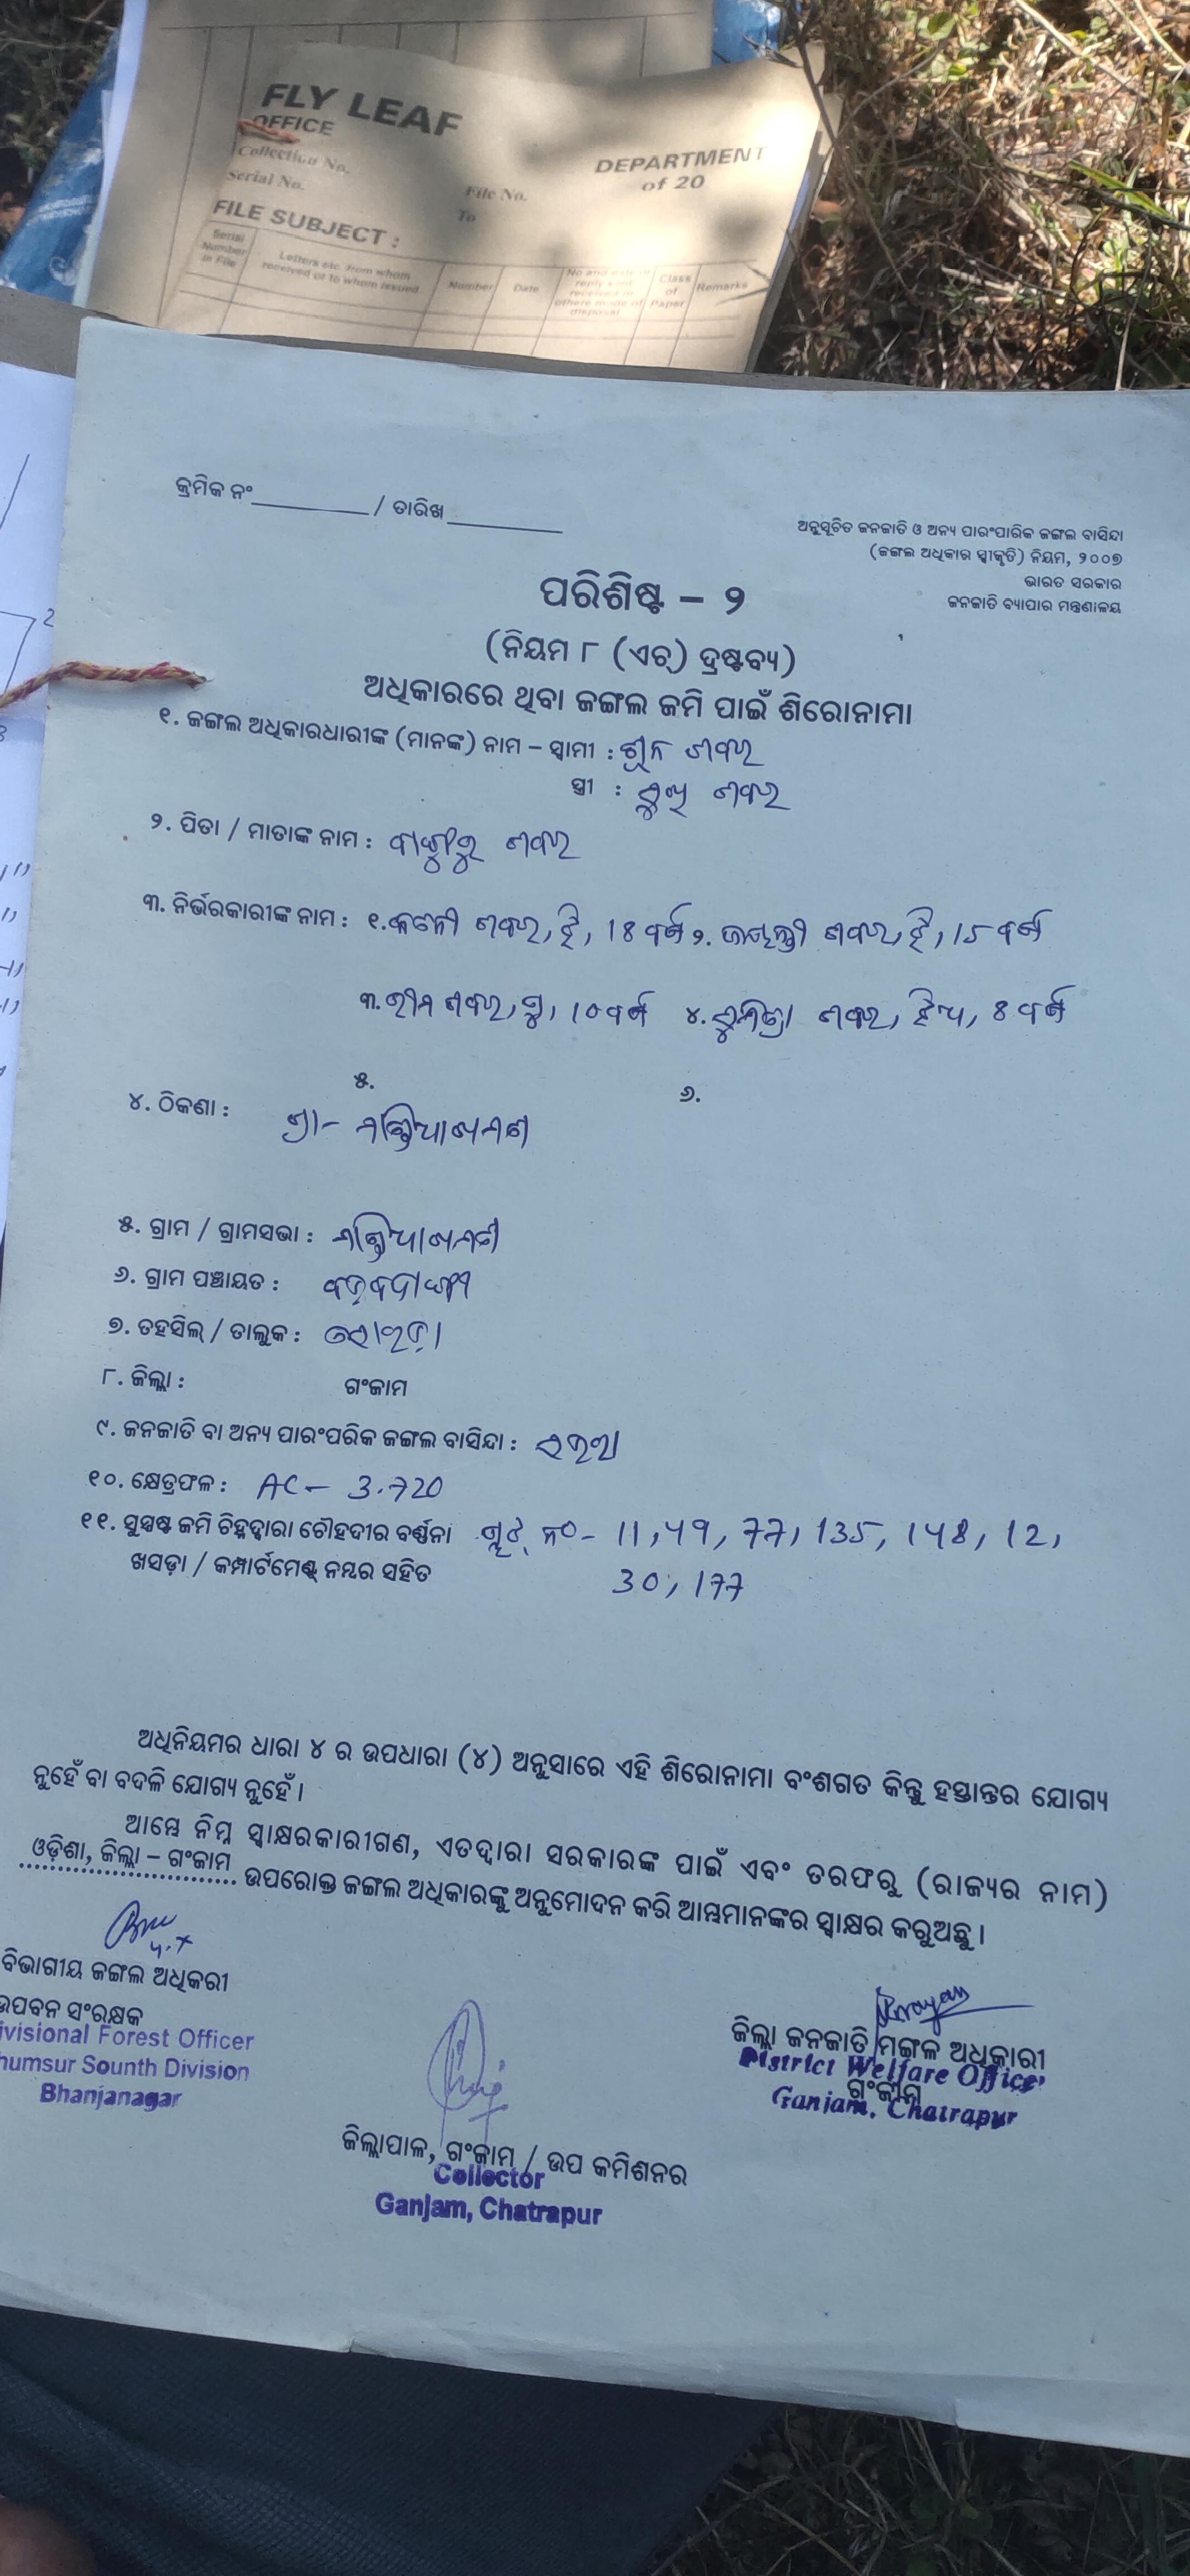 FLY LEAF
OFFICE
Collection No.
Serial No.
DEPARTMENT
of 20
File No.
To
FILE SUBJECT :
Serial Number in File
Letters etc. from whom received or to whom issued
Number
Date
Class of Paper
Remarks
କ୍ରମିକ ନଂ / ତାରିଖ
ଅନୁସୂଚିତ ଜନଜାତି ଓ ଅନ୍ୟ ପାରଂପାରିକ ଜଙ୍ଗଲ ବାସିନ୍ଦା
(ଜଙ୍ଗଲ ଅଧିକାର ସ୍ୱୀକୃତି) ନିୟମ, ୨୦୦୭
ଭାରତ ସରକାର
ଜନଜାତି ବ୍ୟାପାର ମନ୍ତ୍ରଣାଳୟ
ପରିଶିଷ୍ଟ – ୨
(ନିୟମ ୮ (ଏଚ୍) ଦ୍ରଷ୍ଟବ୍ୟ)
ଅଧିକାରରେ ଥିବା ଜଙ୍ଗଲ ଜମି ପାଇଁ ଶିରୋନାମା
୧. ଜଙ୍ଗଲ ଅଧିକାରଧାରୀଙ୍କ (ମାନଙ୍କ) ନାମ – ସ୍ୱାମୀ : ଶବର
ସ୍ତ୍ରୀ : ଶବର
୨. ପିତା / ମାତାଙ୍କ ନାମ : ଶବର
୩. ନିର୍ଭରକାରୀଙ୍କ ନାମ : ୧. ଶବର, ଝି, 18 ବର୍ଷ ୨. ଶବର, ଝି, 15 ବର୍ଷ
୩. ଶବର, ପୁ, 10 ବର୍ଷ ୪. ଶବର, ଝିଅ, 8 ବର୍ଷ
୫. ୬.
୪. ଠିକଣା : ଗ୍ରା-
୫. ଗ୍ରାମ / ଗ୍ରାମସଭା :
୬. ଗ୍ରାମ ପଞ୍ଚାୟତ :
୭. ତହସିଲ୍ / ତାଲୁକ : ସୋରଡ଼ା
୮. ଜିଲ୍ଲା : ଗଂଜାମ
୯. ଜନଜାତି ବା ଅନ୍ୟ ପାରଂପରିକ ଜଙ୍ଗଲ ବାସିନ୍ଦା :
୧୦. କ୍ଷେତ୍ରଫଳ : AC – 3.720
୧୧. ସୁସ୍ପଷ୍ଟ ଜମି ଚିହ୍ନଦ୍ୱାରା ଚୌହଦୀର ବର୍ଣ୍ଣନା ପ୍ଲଟ୍ ନଂ – 11, 49, 77, 135, 148, 12,
ଖସଡ଼ା / କମ୍ପାର୍ଟମେଣ୍ଟ୍ ନମ୍ବର ସହିତ 30, 177
ଅଧିନିୟମର ଧାରା ୪ ର ଉପଧାରା (୪) ଅନୁସାରେ ଏହି ଶିରୋନାମା ବଂଶଗତ କିନ୍ତୁ ହସ୍ତାନ୍ତର ଯୋଗ୍ୟ
ନୁହେଁ ବା ବଦଳି ଯୋଗ୍ୟ ନୁହେଁ ।
ଆମ୍ଭେ ନିମ୍ନ ସ୍ୱାକ୍ଷରକାରୀଗଣ, ଏତଦ୍ୱାରା ସରକାରଙ୍କ ପାଇଁ ଏବଂ ତରଫରୁ (ରାଜ୍ୟର ନାମ)
ଓଡ଼ିଶା, ଜିଲ୍ଲା – ଗଂଜାମ ଉପରୋକ୍ତ ଜଙ୍ଗଲ ଅଧିକାରଙ୍କୁ ଅନୁମୋଦନ କରି ଆମ୍ଭମାନଙ୍କର ସ୍ୱାକ୍ଷର କରୁଅଛୁ ।
ବିଭାଗୀୟ ଜଙ୍ଗଲ ଅଧିକରୀ
ଉପବନ ସଂରକ୍ଷକ
ivisional Forest Officer
humsur Sounth Division
Bhanjanagar
ଜିଲ୍ଲା ଜନଜାତି ମଙ୍ଗଳ ଅଧିକାରୀ
ଗଂଜାମ
District Welfare Officer
Ganjam, Chatrapur
ଜିଲ୍ଲାପାଳ, ଗଂଜାମ / ଉପ କମିଶନର
Collector
Ganjam, Chatrapur